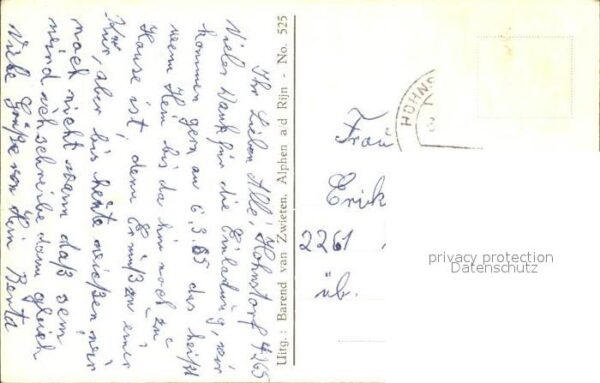 Hohnstorf 4265
Ihr Lieben Alle!
Vielen Dank für die Einladung, wir
kommen gern am 6.3.65 das heißt
wenn Hein bis da hin noch zu
Hause ist, denn Er muß zu einer
Kur, aber bis heute wissen wir
noch nicht wann daß sein
wird ich schreibe dann gleich
Viele Grüße von Hein Berta
Uitg.: Barend van Zwieten, Alphen a d Rijn - No. 525
HOHNS
Frau
Erik
2261
üb.
privacy protection
Datenschutz